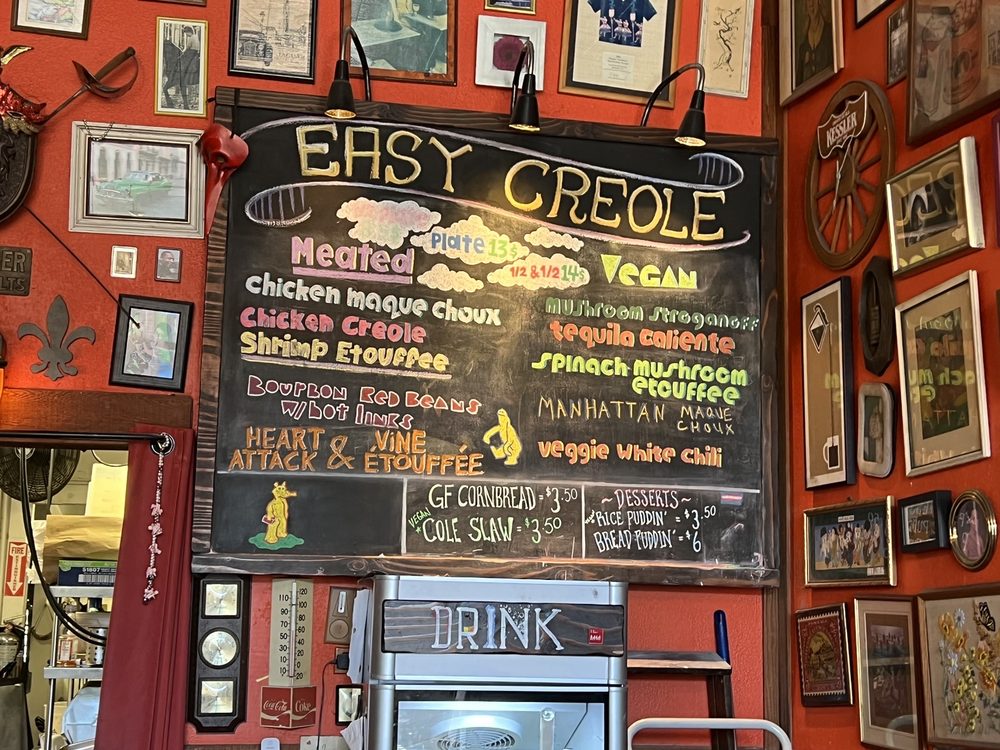 EASY CREOLE
PLATE 13$
1/2 & 1/2 14$
Meated
chicken maque choux
Chicken Creole
Shrimp Etouffee
BOURBON RED BEANS
W/HOT LINKS
HEART & VINE
ATTACK ÉTOUFFÉE
VEGAN
MUSHROOM STROGANOFF
tequila caliente
SPINACH MUSHROOM
etouffee
MANHATTAN MAQUE
CHOUX
veggie white chili
GF CORNBREAD = $3.50
VEGAN
COLE SLAW = $3.50
~ DESSERTS ~
RICE PUDDIN' = $3.50
BREAD PUDDIN' = $6
DRINK
KESSLER
FIRE
Coca-Cola
Coke
110
100
90
80
70
60
50
40
30
20
10
0
120